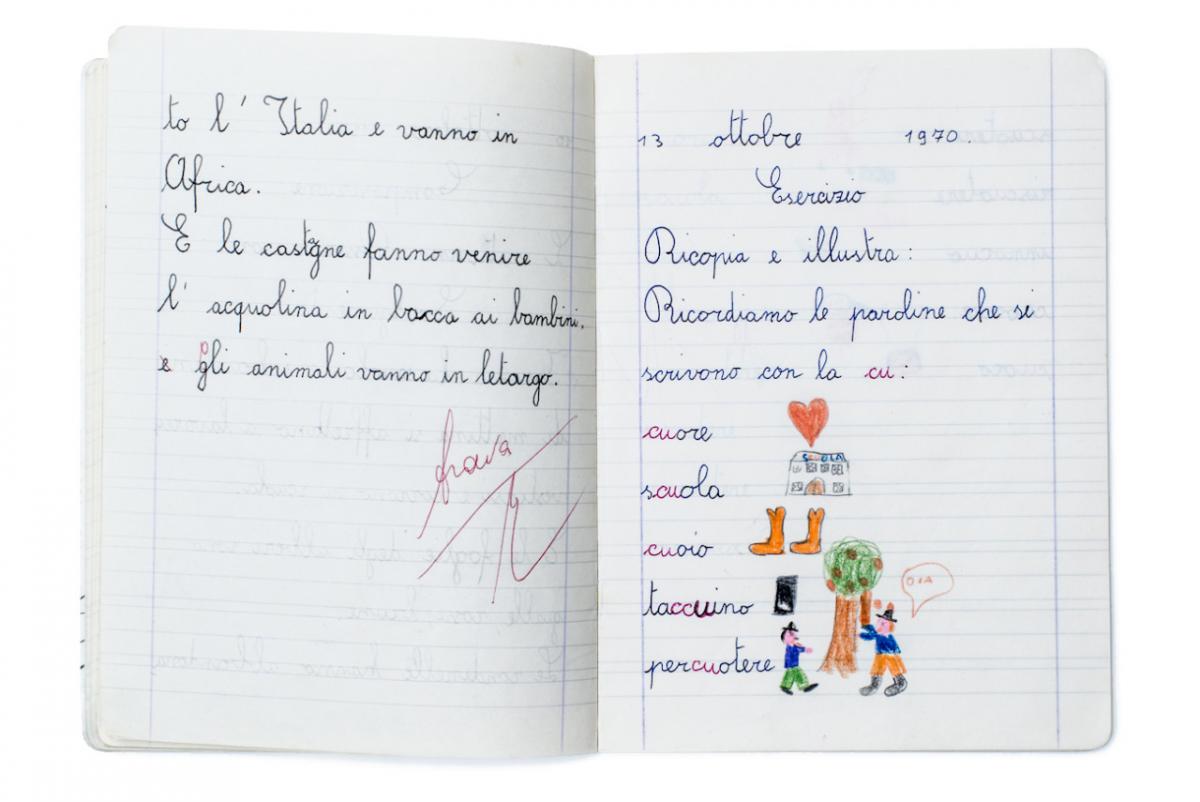 to l' Italia e vanno in
Africa.
E le castgne fanno venire
l' acquolina in bocca ai bambini.
e gli animali vanno in letargo.
brava
13 ottobre 1970.
Esercizio
Ricopia e illustra:
Ricordiamo le paroline che si
scrivono con la cu:
cuore
scuola
SCUOLA
cuoio
taccuino
percuotere